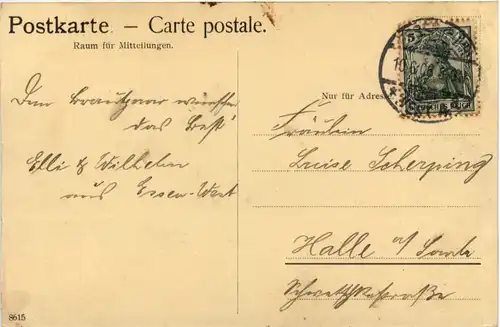 Postkarte. — Carte postale.
Raum für Mitteilungen.
Nur für Adresse
Dem Brautpaar wünschen
das Beste
Elli & Wilhelm
aus Essen-West
Fräulein
Luise Scherping
Halle a/ Saale
8615